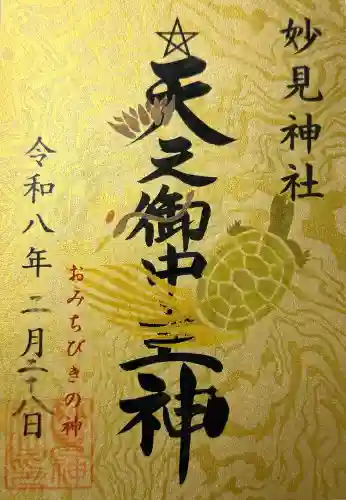 妙見神社
天之御中主神
おみちびきの神
令和八年 二月二十八日